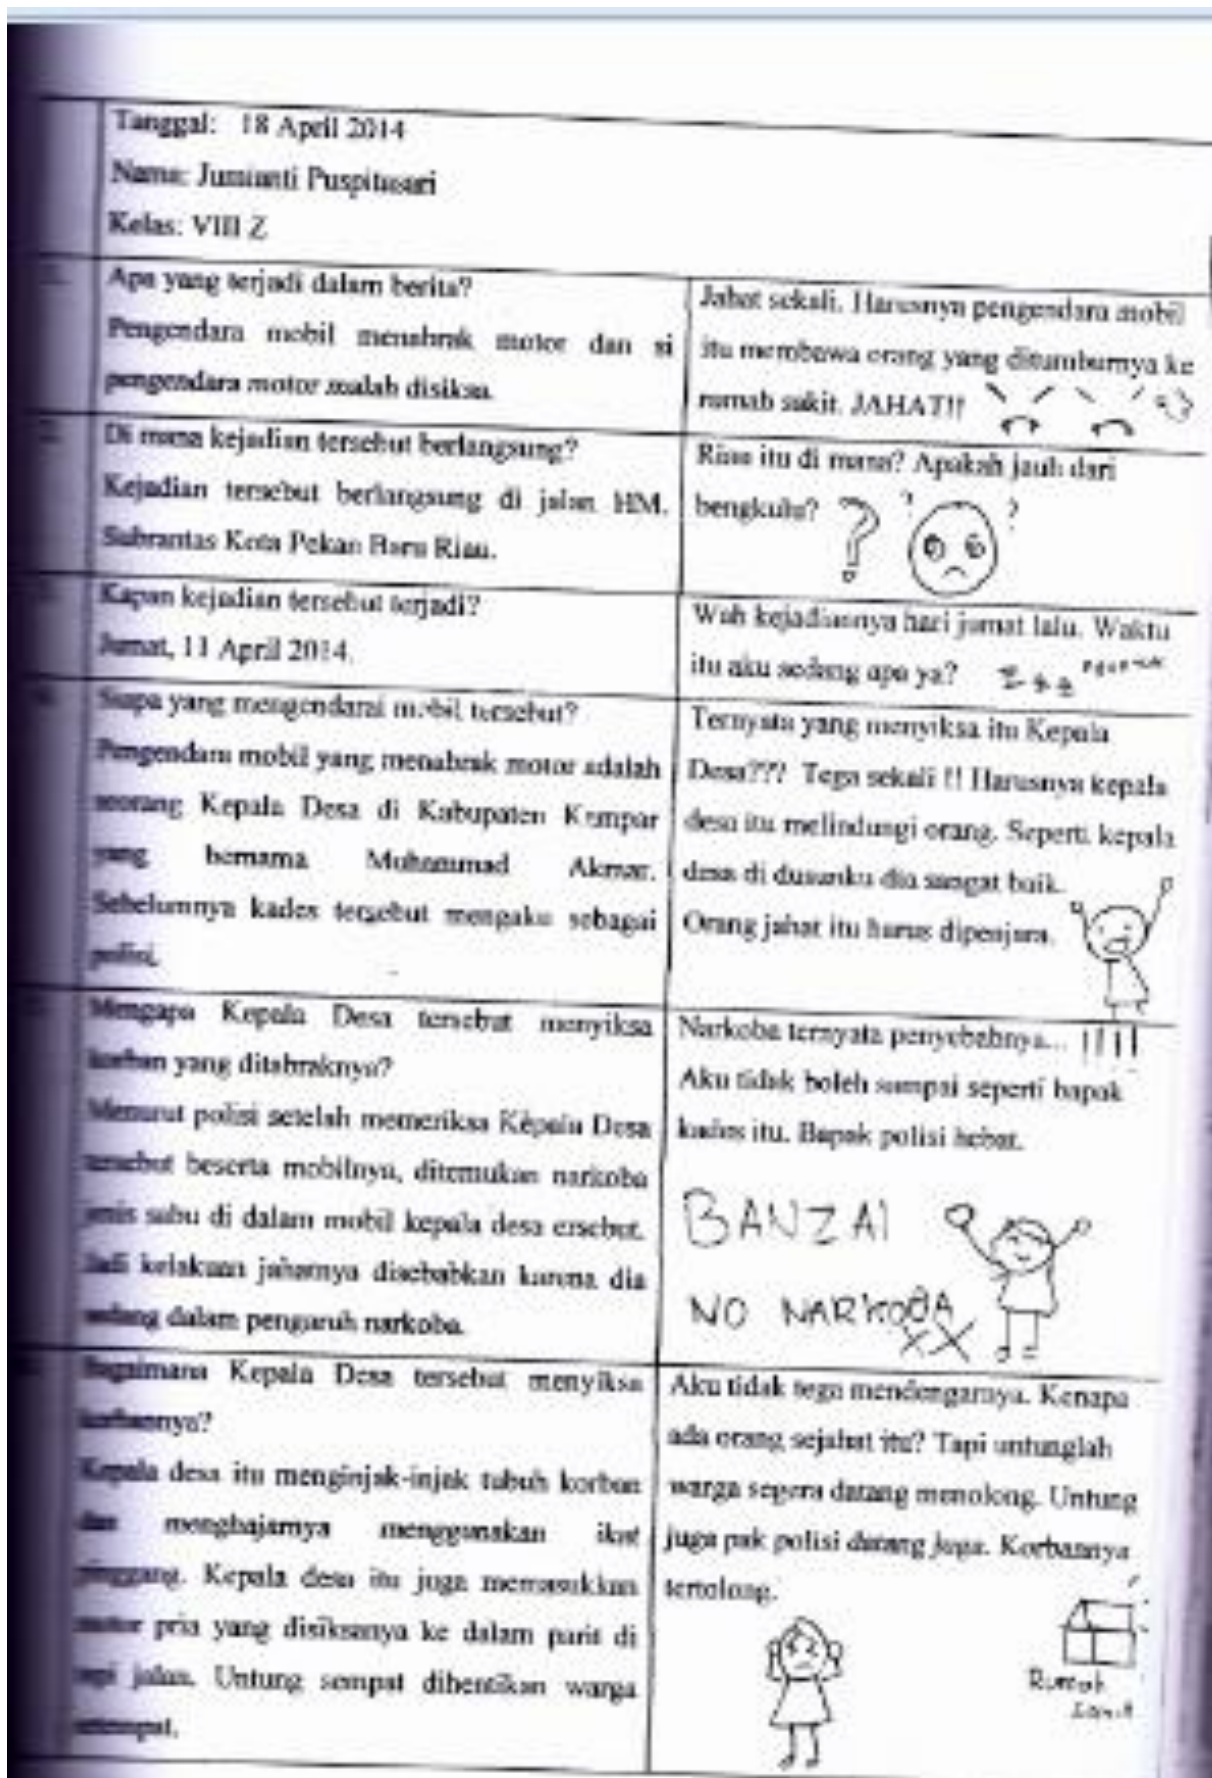 Tanggal: 18 April 2014
Nama: Jumianti Puspitasari
Kelas: VIII Z
Apa yang terjadi dalam berita?
Pengendara mobil menabrak motor dan si
pengendara motor malah disiksa.
Jahat sekali. Harusnya pengendara mobil
itu membawa orang yang ditumburnya ke
rumah sakit. JAHAT!!
2.
Di mana kejadian tersebut berlangsung?
Kejadian tersebut berlangsung di jalan HM.
Subrantas Kota Pekan Baru Riau.
Riau itu di mana? Apakah jauh dari
bengkulu? ? ? ?
Kapan kejadian tersebut terjadi?
Jumat, 11 April 2014.
Wah kejadiannya hari jumat lalu. Waktu
itu aku sedang apa ya?
Siapa yang mengendarai mobil tersebut?
Pengendara mobil yang menabrak motor adalah
seorang Kepala Desa di Kabupaten Kampar
yang bernama Muhammad Akmar.
Sebelumnya kades tersebut mengaku sebagai
polisi.
Ternyata yang menyiksa itu Kepala
Desa??? Tega sekali !! Harusnya kepala
desa itu melindungi orang. Seperti kepala
desa di dusunku dia sangat baik.
Orang jahat itu harus dipenjara.
Mengapa Kepala Desa tersebut menyiksa
korban yang ditabraknya?
Menurut polisi setelah memeriksa Kepala Desa
tersebut beserta mobilnya, ditemukan narkoba
jenis sabu di dalam mobil kepala desa ersebut.
Jadi kelakuan jahatnya disebabkan karena dia
sedang dalam pengaruh narkoba.
Narkoba ternyata penyebabnya... !!!!
Aku tidak boleh sampai seperti bapak
kades itu. Bapak polisi hebat.
BANZAI
NO NARKOBA
XX
Bagaimana Kepala Desa tersebut menyiksa
korbannya?
Kepala desa itu menginjak-injak tubuh korban
dan menghajarnya menggunakan ikat
pinggang. Kepala desa itu juga memasukkan
motor pria yang disiksanya ke dalam parit di
tepi jalan. Untung sempat dihentikan warga
setempat.
Aku tidak tega mendengarnya. Kenapa
ada orang sejahat itu? Tapi untunglah
warga segera datang menolong. Untung
juga pak polisi datang juga. Korbannya
tertolong.
Rumah
Sakit